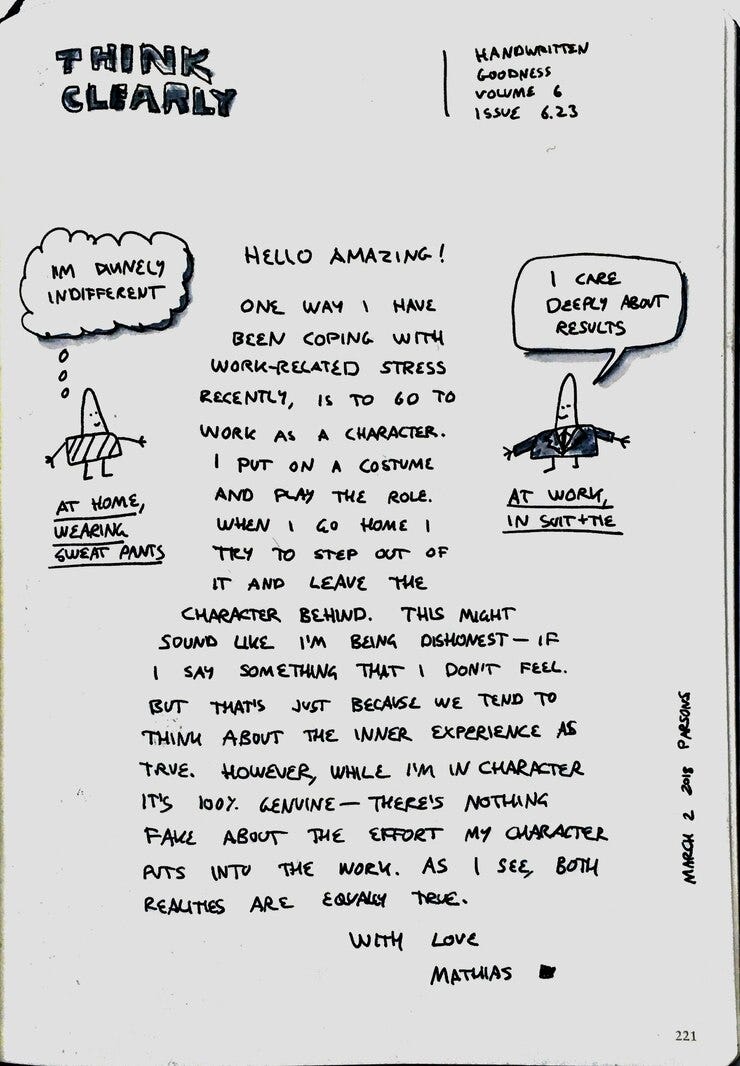 THINK
CLEARLY
HANDWRITTEN
GOODNESS
VOLUME 6
ISSUE 6.23
I'M DIVINELY
INDIFFERENT
AT HOME,
WEARING
SWEAT PANTS
I CARE
DEEPLY ABOUT
RESULTS
AT WORK,
IN SUIT+TIE
HELLO AMAZING!
ONE WAY I HAVE
BEEN COPING WITH
WORK-RELATED STRESS
RECENTLY, IS TO GO TO
WORK AS A CHARACTER.
I PUT ON A COSTUME
AND PLAY THE ROLE.
WHEN I GO HOME I
TRY TO STEP OUT OF
IT AND LEAVE THE
CHARACTER BEHIND. THIS MIGHT
SOUND LIKE I'M BEING DISHONEST — IF
I SAY SOMETHING THAT I DON'T FEEL.
BUT THAT'S JUST BECAUSE WE TEND TO
THINK ABOUT THE INNER EXPERIENCE AS
TRUE. HOWEVER, WHILE I'M IN CHARACTER
IT'S 100% GENUINE — THERE'S NOTHING
FAKE ABOUT THE EFFORT MY CHARACTER
PUTS INTO THE WORK. AS I SEE, BOTH
REALITIES ARE EQUALLY TRUE.
WITH LOVE
MATHIAS
MARCH 2 2018 PARSONS
221